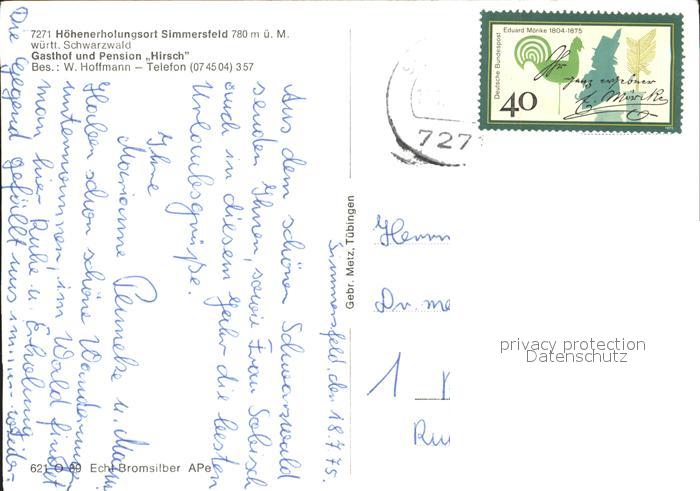 7271 Höhenerholungsort Simmersfeld 780 m ü. M.
württ. Schwarzwald
Gasthof und Pension „Hirsch"
Bes.: W. Hoffmann – Telefon (074504) 357
Simmersfeld, den 18.7.75.
Aus dem schönen Schwarzwald
senden Ihnen, sowie Frau
auch in diesem Jahr die besten
Urlaubsgrüße.
Ihre
Marianne u. Mann
Haben schon schöne Wanderungen
unternommen, im Wald findet
man hier Ruhe u. Erholung.
Die Gegend gefällt uns immer wieder.
621 O 89 Echt Bromsilber APe
Gebr. Metz, Tübingen
Eduard Mörike 1804-1875
Deutsche Bundespost
40
E. Mörike
1975
727
Herrn
Dr. me
1
privacy protection
Datenschutz